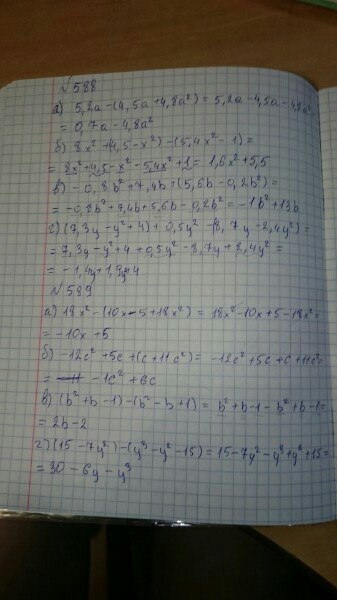 №588
а) 5,2а-(4,5а+4,8а²)=5,2а-4,5а-4,8а²=
=0,7а-4,8а²
б) 8x²+(4,5-x²)-(5,4x²-1)=
=8x²+4,5-x²-5,4x²+1=1,6x²+5,5
в) -0,8b²+7,4b+(5,6b-0,2b²)=
=-0,8b²+7,4b+5,6b-0,2b²=-1b²+13b
г) (7,3y-y²+4)+0,5y²-(8,7y-2,4y²)=
=7,3y-y²+4+0,5y²-8,7y+2,4y²=
=-1,4y+1,9y+4
№589
а) 18x²-(10x-5+18x²)=18x²-10x+5-18x²=
=-10x+5
б) -12c²+5c+(c+11c²)=-12c²+5c+c+11c²=
=-1c²+6c
в) (b²+b-1)-(b²-b+1)=b²+b-1-b²+b-1=
=2b-2
г) (15-7y²)-(y³-y²-15)=15-7y²-y³+y²+15=
=30-6y-y³